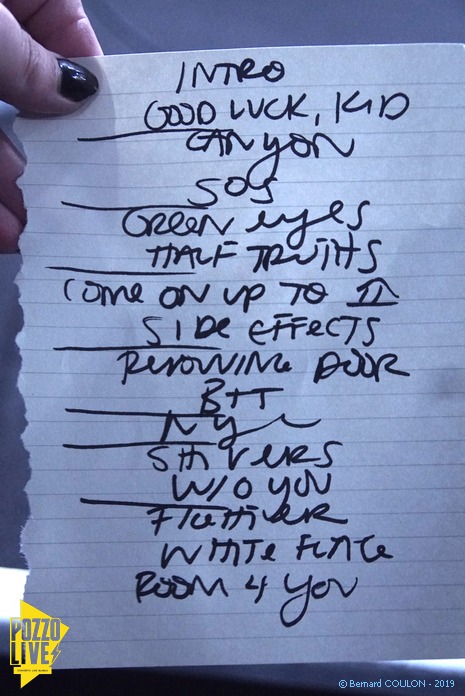 INTRO
GOOD LUCK, KID
CANYON
SOS
GREEN eyes
HALF TRUTHS
COME ON UP TO IT
SIDE EFFECTS
REVOLVING DOOR
BTT
NYE
SHIVERS
W/O YOU
FIGHTIVER
WHITE FLAG
ROOM 4 YOU
POZZO
LIVE
© Bernard COULON - 2019